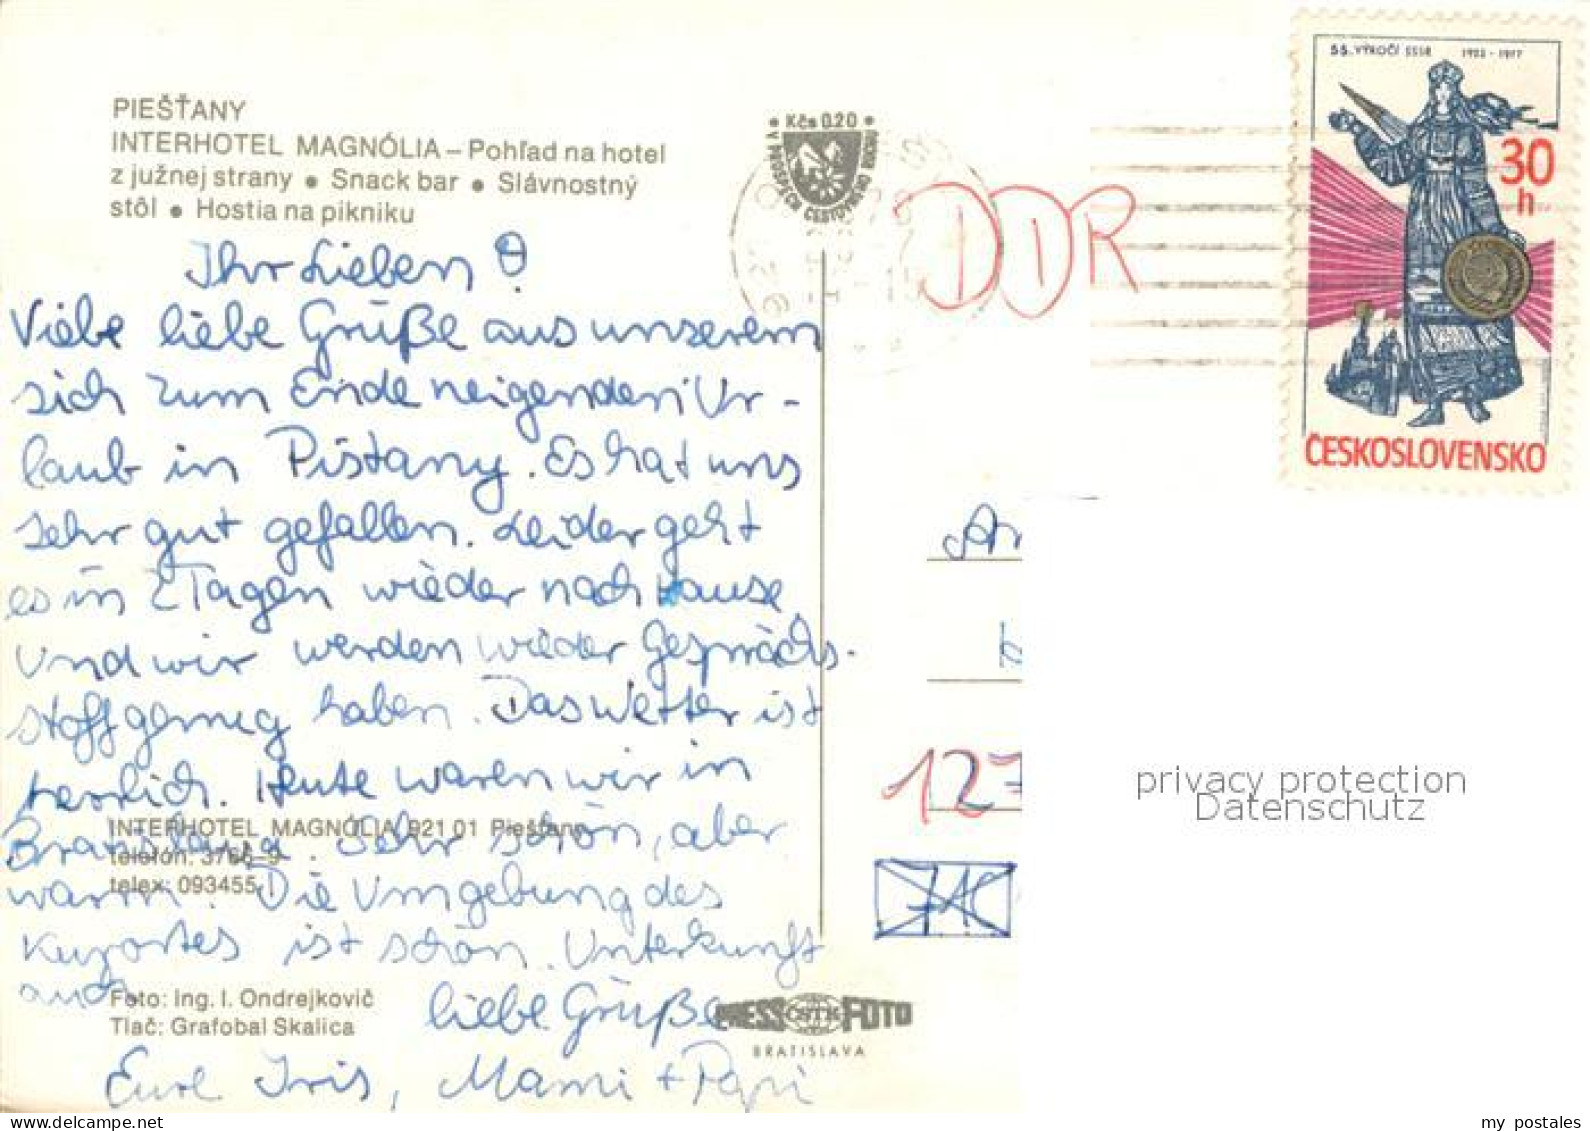 55. VÝROČÍ SSSR 1922 - 1977
30
h
ČESKOSLOVENSKO
PIEŠŤANY
INTERHOTEL MAGNÓLIA – Pohľad na hotel
z južnej strany • Snack bar • Slávnostný
stôl • Hostia na pikniku
• Kčs 0,20 •
V PROSPECH CESTOVNÉHO RUCHU
DDR
Ihr Lieben!
Viele liebe Grüße aus unserem
sich zum Ende neigenden Ur-
laub in Pistany. Es hat uns
sehr gut gefallen. Leider geht
es in 2 Tagen wieder nach Hause
und wir werden wieder Gesprächs-
stoff genug haben. Das Wetter ist
herrlich. Heute waren wir in
Bratislava. Sehr schön, aber
warm. Die Umgebung des
Kurortes ist schön. Unterkunft
auch.
liebe Grüße
Eure Iris, Mami + Papi
INTERHOTEL MAGNÓLIA, 921 01 Piešťany
telefón: 3766–9
telex: 093455
Foto: Ing. I. Ondrejkovič
Tlač: Grafobal Skalica
PRESS ČSTK FOTO
BRATISLAVA
An
127
privacy protection
Datenschutz
my postales